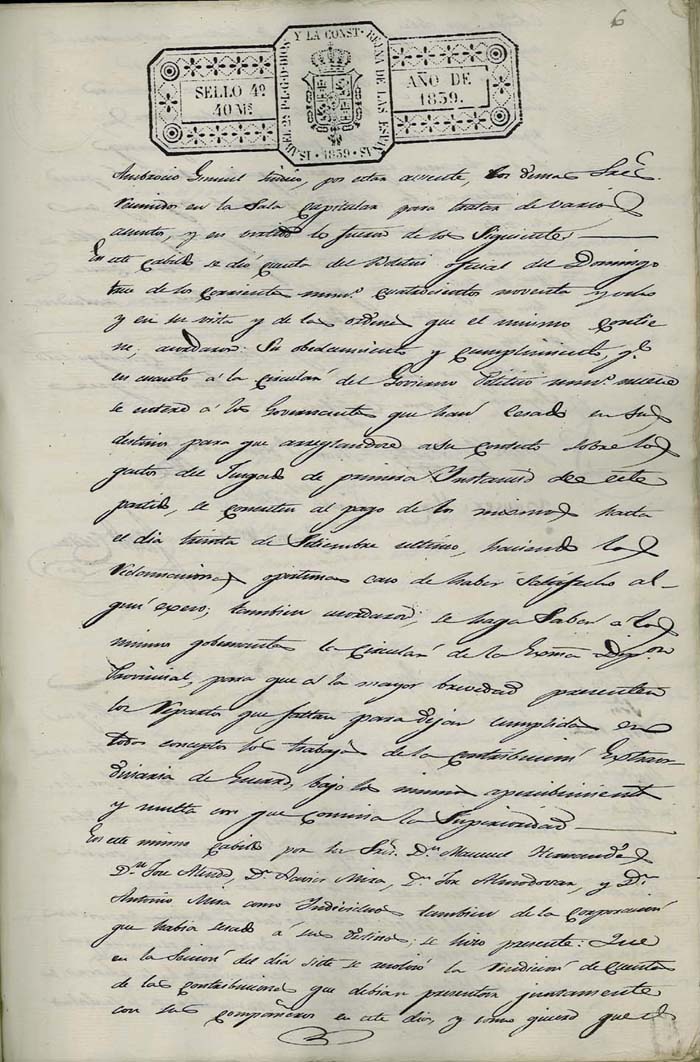 6
ISABEL 2ª P.L.G.D. DIOS Y LA CONST. REYNA DE LAS ESPAÑAS
SELLO 4º
40 Mˢ
AÑO DE
1839.
1839
Ambrocio síndico, por estar ausente, los demas Sreˢ
reunidos en la Sala Capitular para tratar de varios
asuntos, y en lo fueron de los Siguientes
En este Cabildo se dió cuenta del Boletin oficial del Domingo
trece de los corrientes numº cuatrocientos noventa y ocho
y en su vista y de las ordenes que el mismo contie
ne, acordaron: Su obedecimiento y cumplimiento, y qᵉ
en cuanto á la circular del Govierno Politico numº
se entere á los Governantes que han cesado en sus
destinos para que arreglandose a su contesto sobre los
gastos del Juzgado de primera Instancia de este
partido, se al pago de los mismos hasta
el dia treinta de Setiembre ultimo, haciendo las
reclamaciones oportunas caso de haber Satisfecho al-
gun exceso; tambien acordaron, se haga Saber á los
mismos gobernantes la circular de la Exma Dipᵒⁿ
Provincial, para que á la mayor brevedad presenten
los Repartos que faltan para dejar cumplidos en
todos conceptos los trabajos de la contribucion Extraor
dinaria de Guerra, bajo los mismos apercibimientos
y multa con que conmina la Superioridad
En este mismo Cabildo por los Sreˢ. Dⁿ Manuel Hernandes
Dⁿ Jose Dⁿ Xavier Mira, Dⁿ Jose Almodovar, y Dⁿ
Antonio Mira como Individuos tambien de la Corporacion
que habia cesado á sus destinos; se hizo presente: Que
en la Sesion del dia siete se resolvió la rendicion de cuentas
de las contribuciones que debian presentar juntamente
con sus compañeros en este dia, y como que el